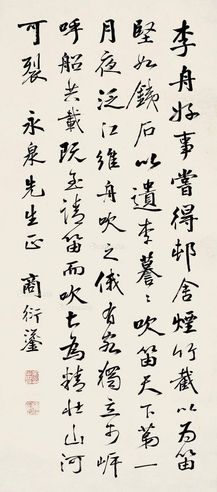 李舟好事嘗得邨舍煙竹截以為笛
堅如鐵石以遺李謩〻吹笛天下第一
月夜泛江維舟吹之俄有客獨立于岸
呼船共載既至請笛而吹甚為精壯山河
可裂 永泉先生正 商衍鎏